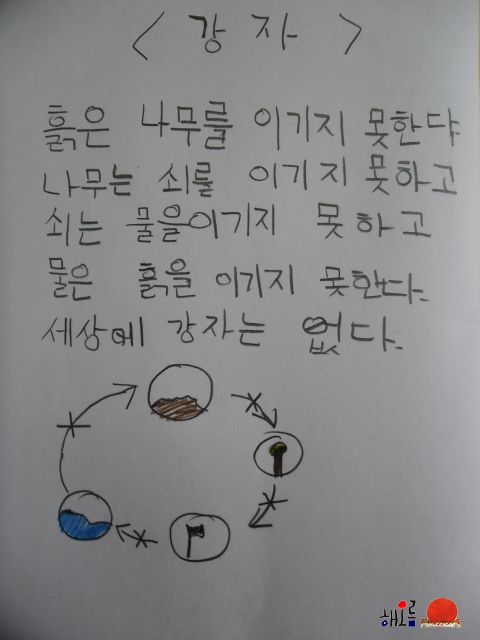 < 강 자 >
흙은 나무를 이기지 못한다
나무는 쇠를 이기지 못하고
쇠는 물을이기지 못하고
물은 흙을 이기지 못한다.
세상에 강자는 없다.
해오름